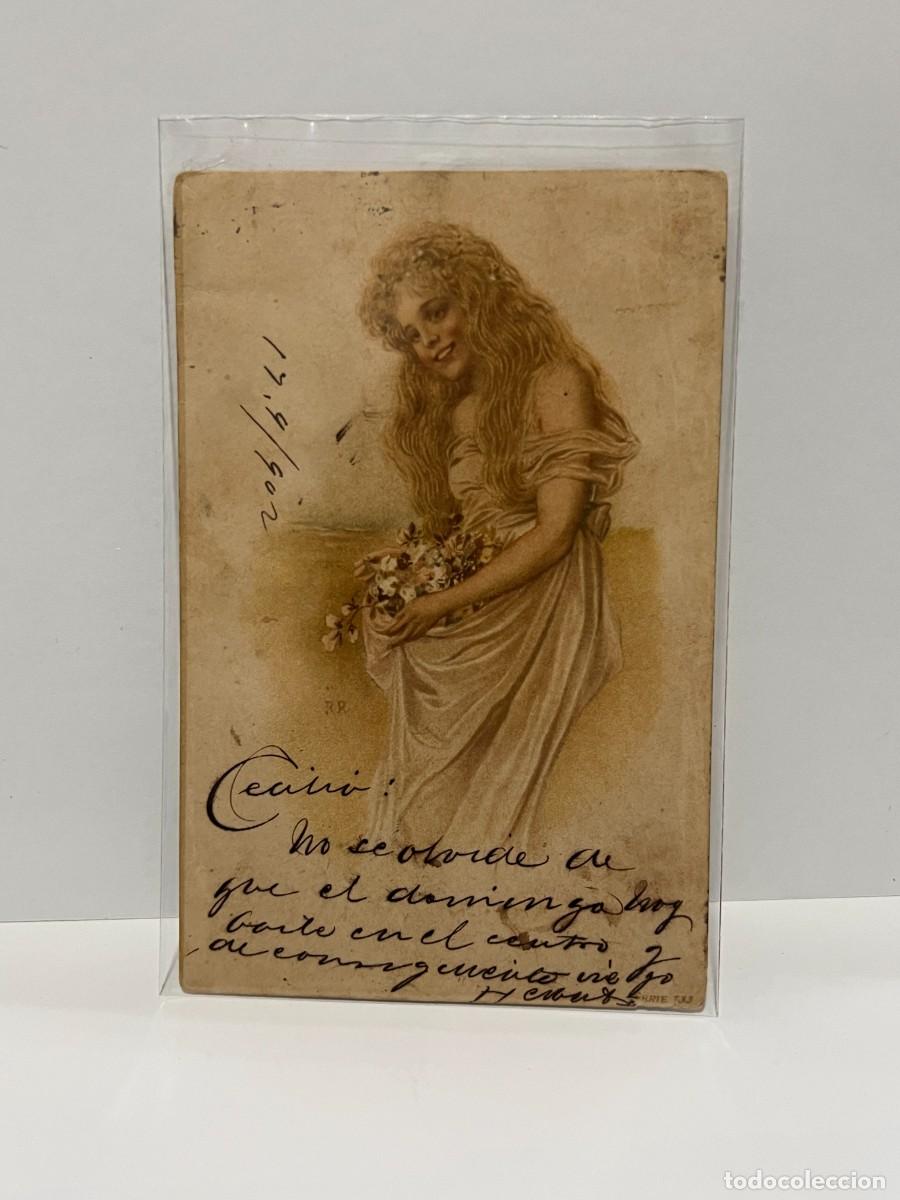 17.9/902
R.R.
Cecilio:
No se olvide de
que el domingo hay
baile en el centro y
de consiguiente
SERIE
todocoleccion
todocoleccion.net